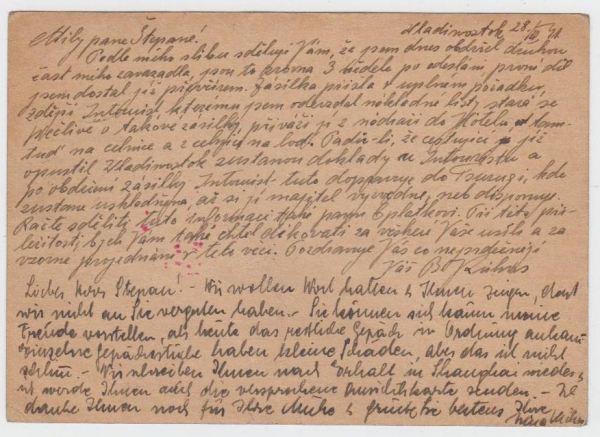 Vladivostok 28/III 41
Milý pane Štepane!
Podle mého slibu sděluji Vám, že jsem dnes obdržel druhou
část mého zavazadla, jsou to rovna 3 neděle po odeslání, první díl
jsem dostal již předvčírem. Zásilka přišla v uplném pořádku,
zdejší Intourist, kterému jsem odevzdal nakladné listy, stará se
pečlivě o takové zásilky, přiváží je z nádraží do Hotelu, a
na celnici a z celnice na loď. Padá-li, že cestující již
opustil Vladivostok zustanou doklady u Intouristu a
po obdržení zásilky Intourist tuto dopravuje do Tsurugi, kde
zustane uskladněna, až si ji majitel vyzvedne, neb disponuje.
Račte sděliti tuto informaci také panu Oplatkovi. Při této
příležitosti bych Vám také chtěl děkovati za vzácné Vaše usílí a za
vzorné projednání v této věci. Pozdravuje Vás co nejsrdečněji
Váš
Lieber Herr Stepan! - Wir wollen Wort halten & Ihnen zeigen, dass
wir nicht an Sie vergessen haben. - Sie können sich kaum meine
Freude vorstellen, als heute das restliche Gepäck in Ordnung ankam
einzelne Gepäckstücke haben kleine Schäden, aber das ist nicht
schlimm. - Wir schreiben Ihnen nach Erhalt in Shanghai wieder &
ich werde Ihnen auch die versprochene Ansichtskarte senden. - Ich
danke Ihnen noch für Ihre Mühe & grüsse Sie bestens Ihre